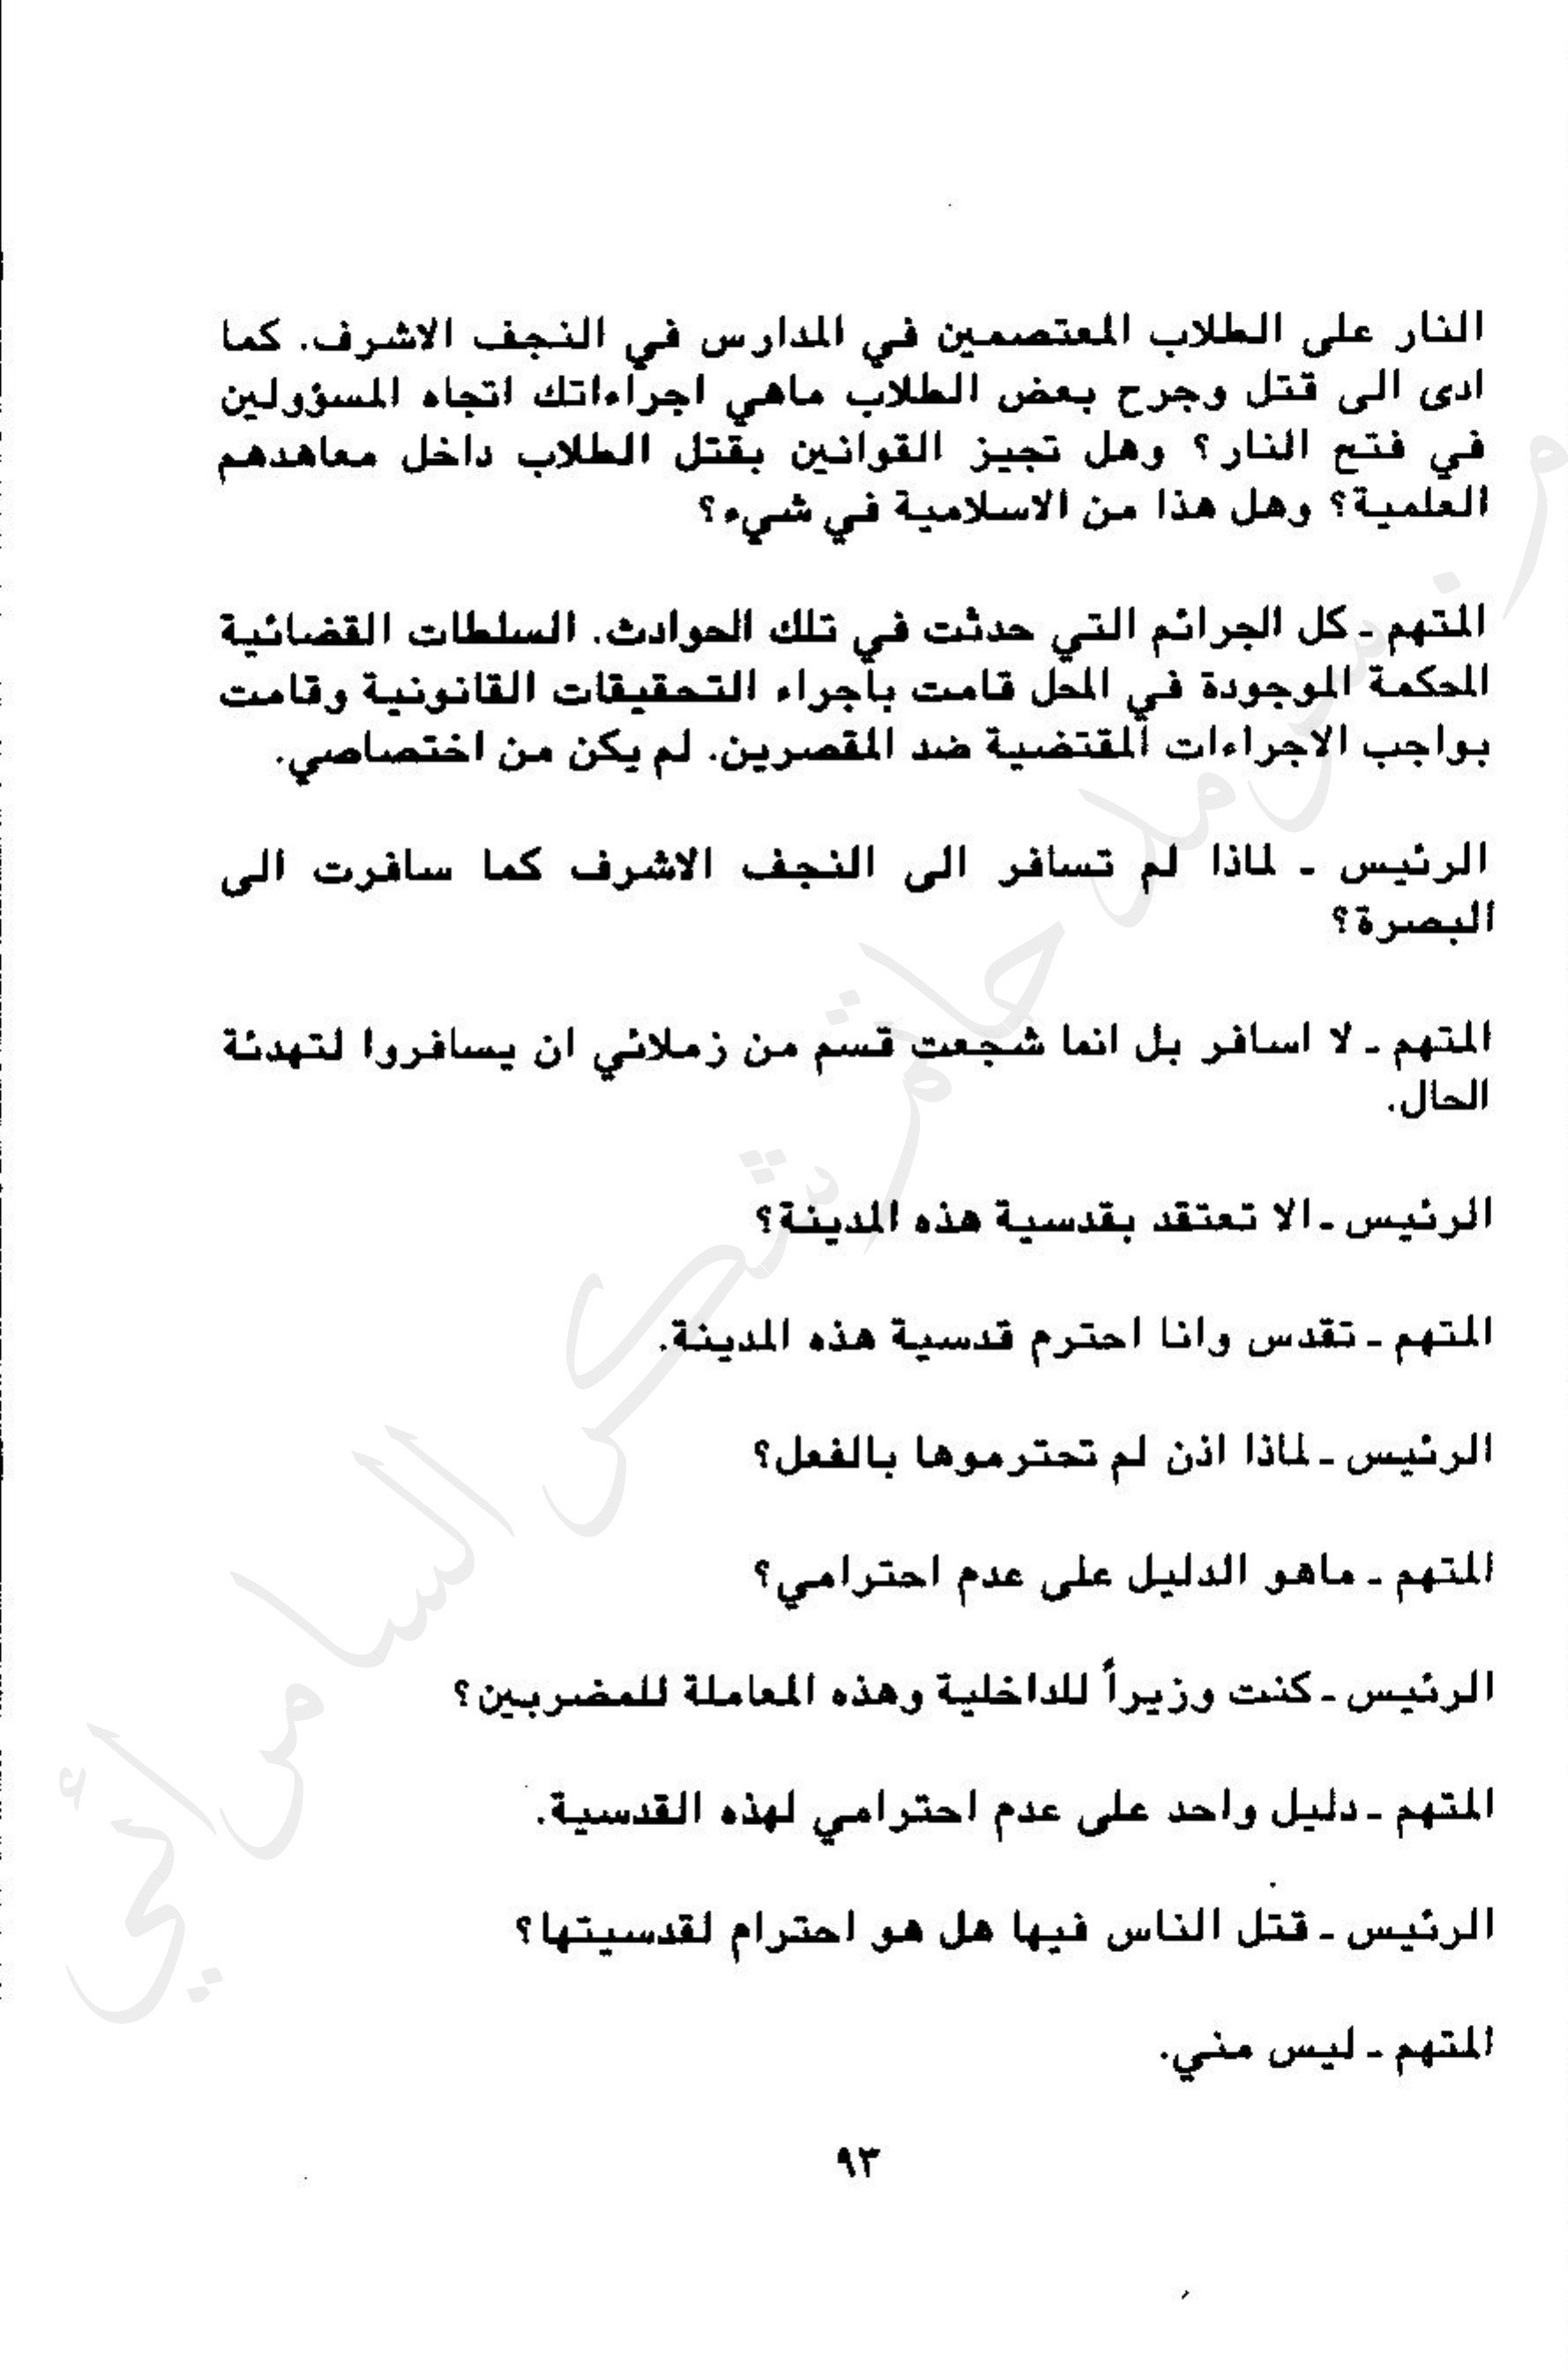 النار على الطلاب المعتصمين في المدارس في النجف الاشرف. كما
ادى الى قتل وجرح بعض الطلاب ماهي اجراءاتك اتجاه المسؤولين
في فتح النار؟ وهل تجيز القوانين بقتل الطلاب داخل معاهدهم
العلمية؟ وهل هذا من الاسلامية في شيء؟
المتهم - كل الجرائم التي حدثت في تلك الحوادث. السلطات القضائية
المحكمة الموجودة في المحل قامت بأجراء التحقيقات القانونية وقامت
بواجب الاجراءات المقتضية ضد المقصرين. لم يكن من اختصاصي.
الرئيس - لماذا لم تسافر الى النجف الاشرف كما سافرت الى
البصرة؟
المتهم - لا اسافر بل انما شجعت قسم من زملائي ان يسافروا لتهدئة
الحال.
الرئيس - الا تعتقد بقدسية هذه المدينة؟
المتهم - تقدس وانا احترم قدسية هذه المدينة.
الرئيس - لماذا اذن لم تحترموها بالفعل؟
المتهم - ماهو الدليل على عدم احترامي؟
الرئيس - كنت وزيراً للداخلية وهذه المعاملة للمضربين؟
المتهم - دليل واحد على عدم احترامي لهذه القدسية.
الرئيس - قتل الناس فيها هل هو احترام لقدسيتها؟
المتهم - ليس مني.
٩٣
سرمد حاتم شكر السامرائي